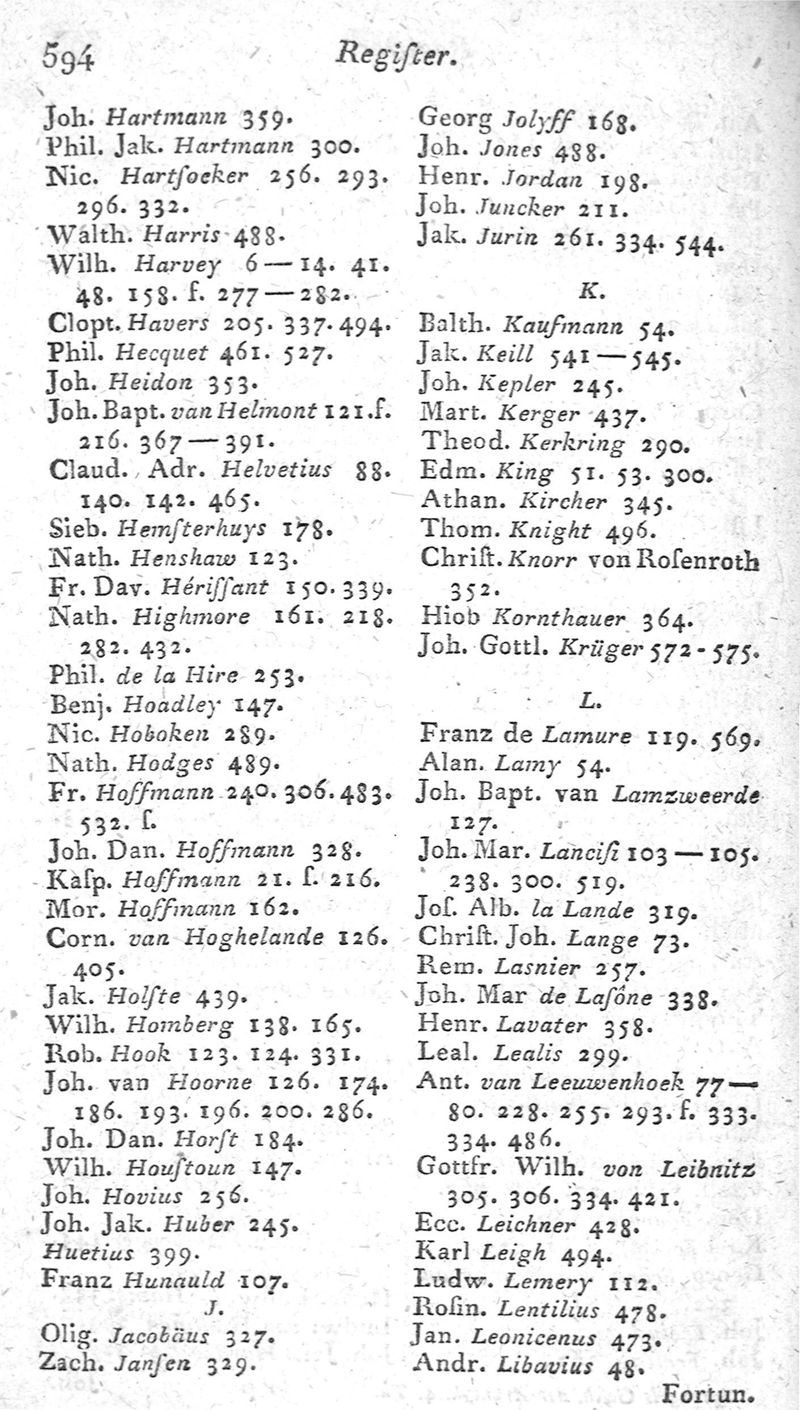 594 Regiſter.
Joh. Hartmann 359.
Phil. Jak. Hartmann 300.
Nic. Hartſoeker 256. 293.
296. 332.
Walth. Harris 488.
Wilh. Harvey 6—14. 41.
48. 158. f. 277—282.
Clopt. Havers 205. 337. 494.
Phil. Hecquet 461. 527.
Joh. Heidon 353.
Joh. Bapt. van Helmont 121. f.
216. 367—391.
Claud. Adr. Helvetius 88.
140. 142. 465.
Sieb. Hemſterhuys 178.
Nath. Henshaw 123.
Fr. Dav. Hériſſant 150. 339.
Nath. Highmore 161. 218.
282. 432.
Phil. de la Hire 253.
Benj. Hoadley 147.
Nic. Hoboken 289.
Nath. Hodges 489.
Fr. Hoffmann 240. 306. 483.
532. f.
Joh. Dan. Hoffmann 328.
Kaſp. Hoffmann 21. f. 216.
Mor. Hoffmann 162.
Corn. van Hoghelande 126.
405.
Jak. Holſte 439.
Wilh. Homberg 138. 165.
Rob. Hook 123. 124. 331.
Joh. van Hoorne 126. 174.
186. 193. 196. 200. 286.
Joh. Dan. Horſt 184.
Wilh. Houſtoun 147.
Joh. Hovius 256.
Joh. Jak. Huber 245.
Huetius 399.
Franz Hunauld 107.
J.
Olig. Jacobäus 327.
Zach. Janſen 329.
Georg Jolyff 168.
Joh. Jones 488.
Henr. Jordan 198.
Joh. Juncker 211.
Jak. Jurin 261. 334. 544.
K.
Balth. Kaufmann 54.
Jak. Keill 541—545.
Joh. Kepler 245.
Mart. Kerger 437.
Theod. Kerkring 290.
Edm. King 51. 53. 300.
Athan. Kircher 345.
Thom. Knight 496.
Chriſt. Knorr von Roſenroth
352.
Hiob Kornthauer 364.
Joh. Gottl. Krüger 572-575.
L.
Franz de Lamure 119. 569.
Alan. Lamy 54.
Joh. Bapt. van Lamzweerde
127.
Joh. Mar. Lanciſi 103—105.
238. 300. 519.
Joſ. Alb. la Lande 319.
Chriſt. Joh. Lange 73.
Rem. Lasnier 257.
Joh. Mar de Laſône 338.
Henr. Lavater 358.
Leal. Lealis 299.
Ant. van Leeuwenhoek 77—
80. 228. 255. 293. f. 333.
334. 486.
Gottfr. Wilh. von Leibnitz
305. 306. 334. 421.
Ecc. Leichner 428.
Karl Leigh 494.
Ludw. Lemery 112.
Roſin. Lentilius 478.
Jan. Leonicenus 473.
Andr. Libavius 48.
Fortun.